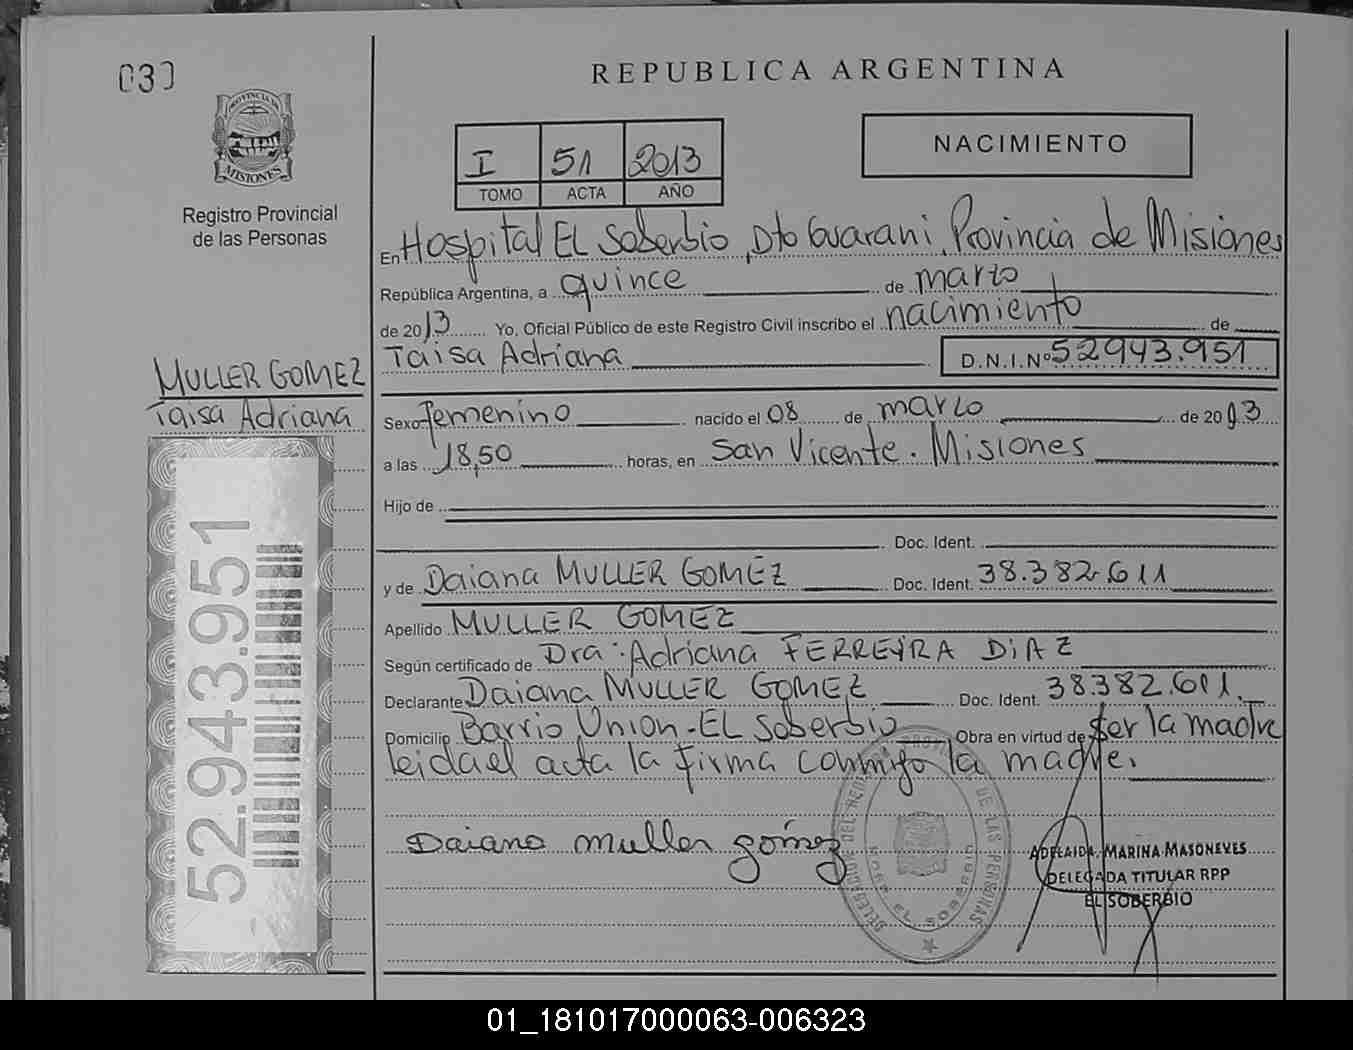 030
PROVINCIA DE
MISIONES
Registro Provincial
de las Personas
REPUBLICA ARGENTINA
I 51 2013
TOMO ACTA AÑO
NACIMIENTO
En Hospital EL Soberbio, Dto Guarani, Provincia de Misiones
República Argentina, a quince de marzo
de 2013 Yo. Oficial Público de este Registro Civil inscribo el nacimiento de
Taisa Adriana D.N.I.Nº 52943.951
MULLER GOMEZ
Taisa Adriana
Sexo femenino nacido el 08 de marzo de 2013
a las 18,50 horas, en San Vicente. Misiones
Hijo de
Doc. Ident.
y de Daiana MULLER GOMEZ Doc. Ident. 38.382.611
Apellido MULLER GOMEZ
Según certificado de Dra: Adriana FERREYRA DIAZ
Declarante Daiana MULLER GOMEZ Doc. Ident. 38.382.611.
Domicilio Barrio Union-EL Soberbio Obra en virtud de ser la madre
leida el acta la firma conmigo la madre.
Daiana muller gómez
ADELAIDA MARINA MASONEVES
DELEGADA TITULAR RPP
EL SOBERBIO
DE LAS PERSONAS
EL SOBERBIO
52.943.951
01_181017000063-006323